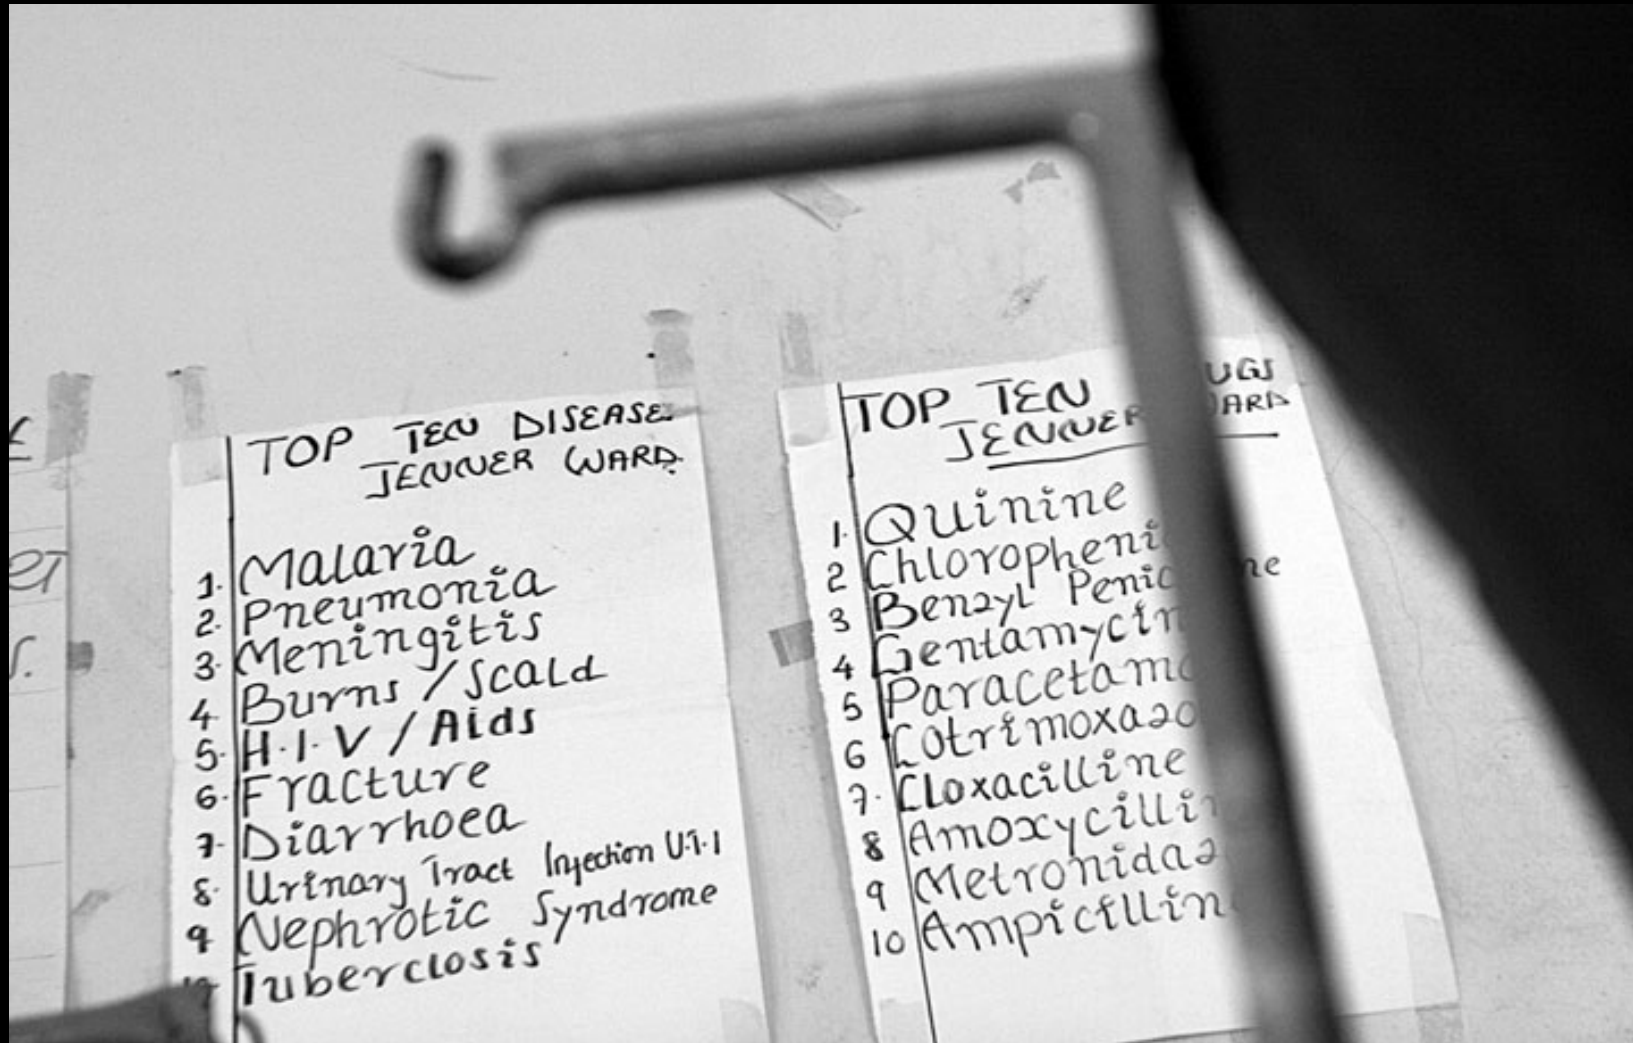 TOP TEN DISEASE
JENNER WARD.
1. Malaria
2. Pneumonia
3. Meningitis
4 Burns / Scald
5. H.I.V / Aids
6. Fracture
7. Diarrhoea
8. Urinary Tract Injection U.T.I
9 Nephrotic Syndrome
Tuberclosis
TOP TEN UGS
JENNER ARD
1. Quinine
2 Chloropheni
3 Benzyl Penic ne
4 Gentamycin
5 Paracetamo
6 Cotrimoxazo
7. Cloxacilline
8 Amoxycillin
9 Metronidaz
10 Ampicillin